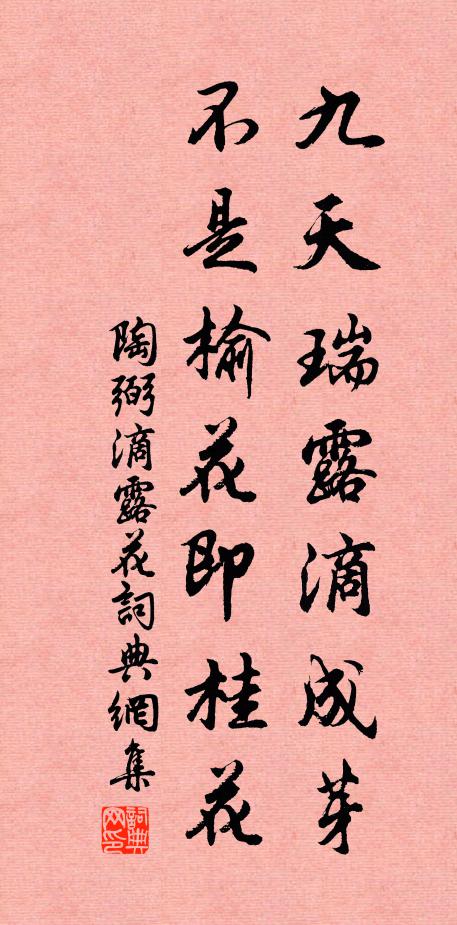 九天瑞露滴成芽
不是榆花即桂花
陶弼滴露花詞典網集
詞典网印